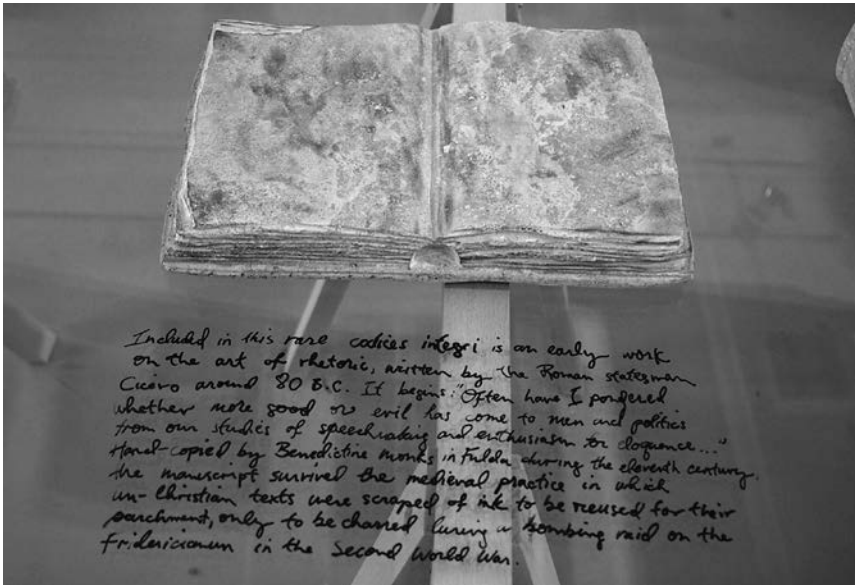 Included in this rare codices integri is an early work
on the art of rhetoric, written by the Roman statesman
Cicero around 80 B.C. It begins: "Often have I pondered
whether more good or evil has come to men and politics
from our studies of speechmaking and enthusiasm for eloquence..."
Hand-copied by Benedictine monks in Fulda during the eleventh century,
the manuscript survived the medieval practice in which
un-Christian texts were scraped of ink to be reused for their
parchment, only to be charred during a bombing raid on the
Fridericianum in the Second World War.